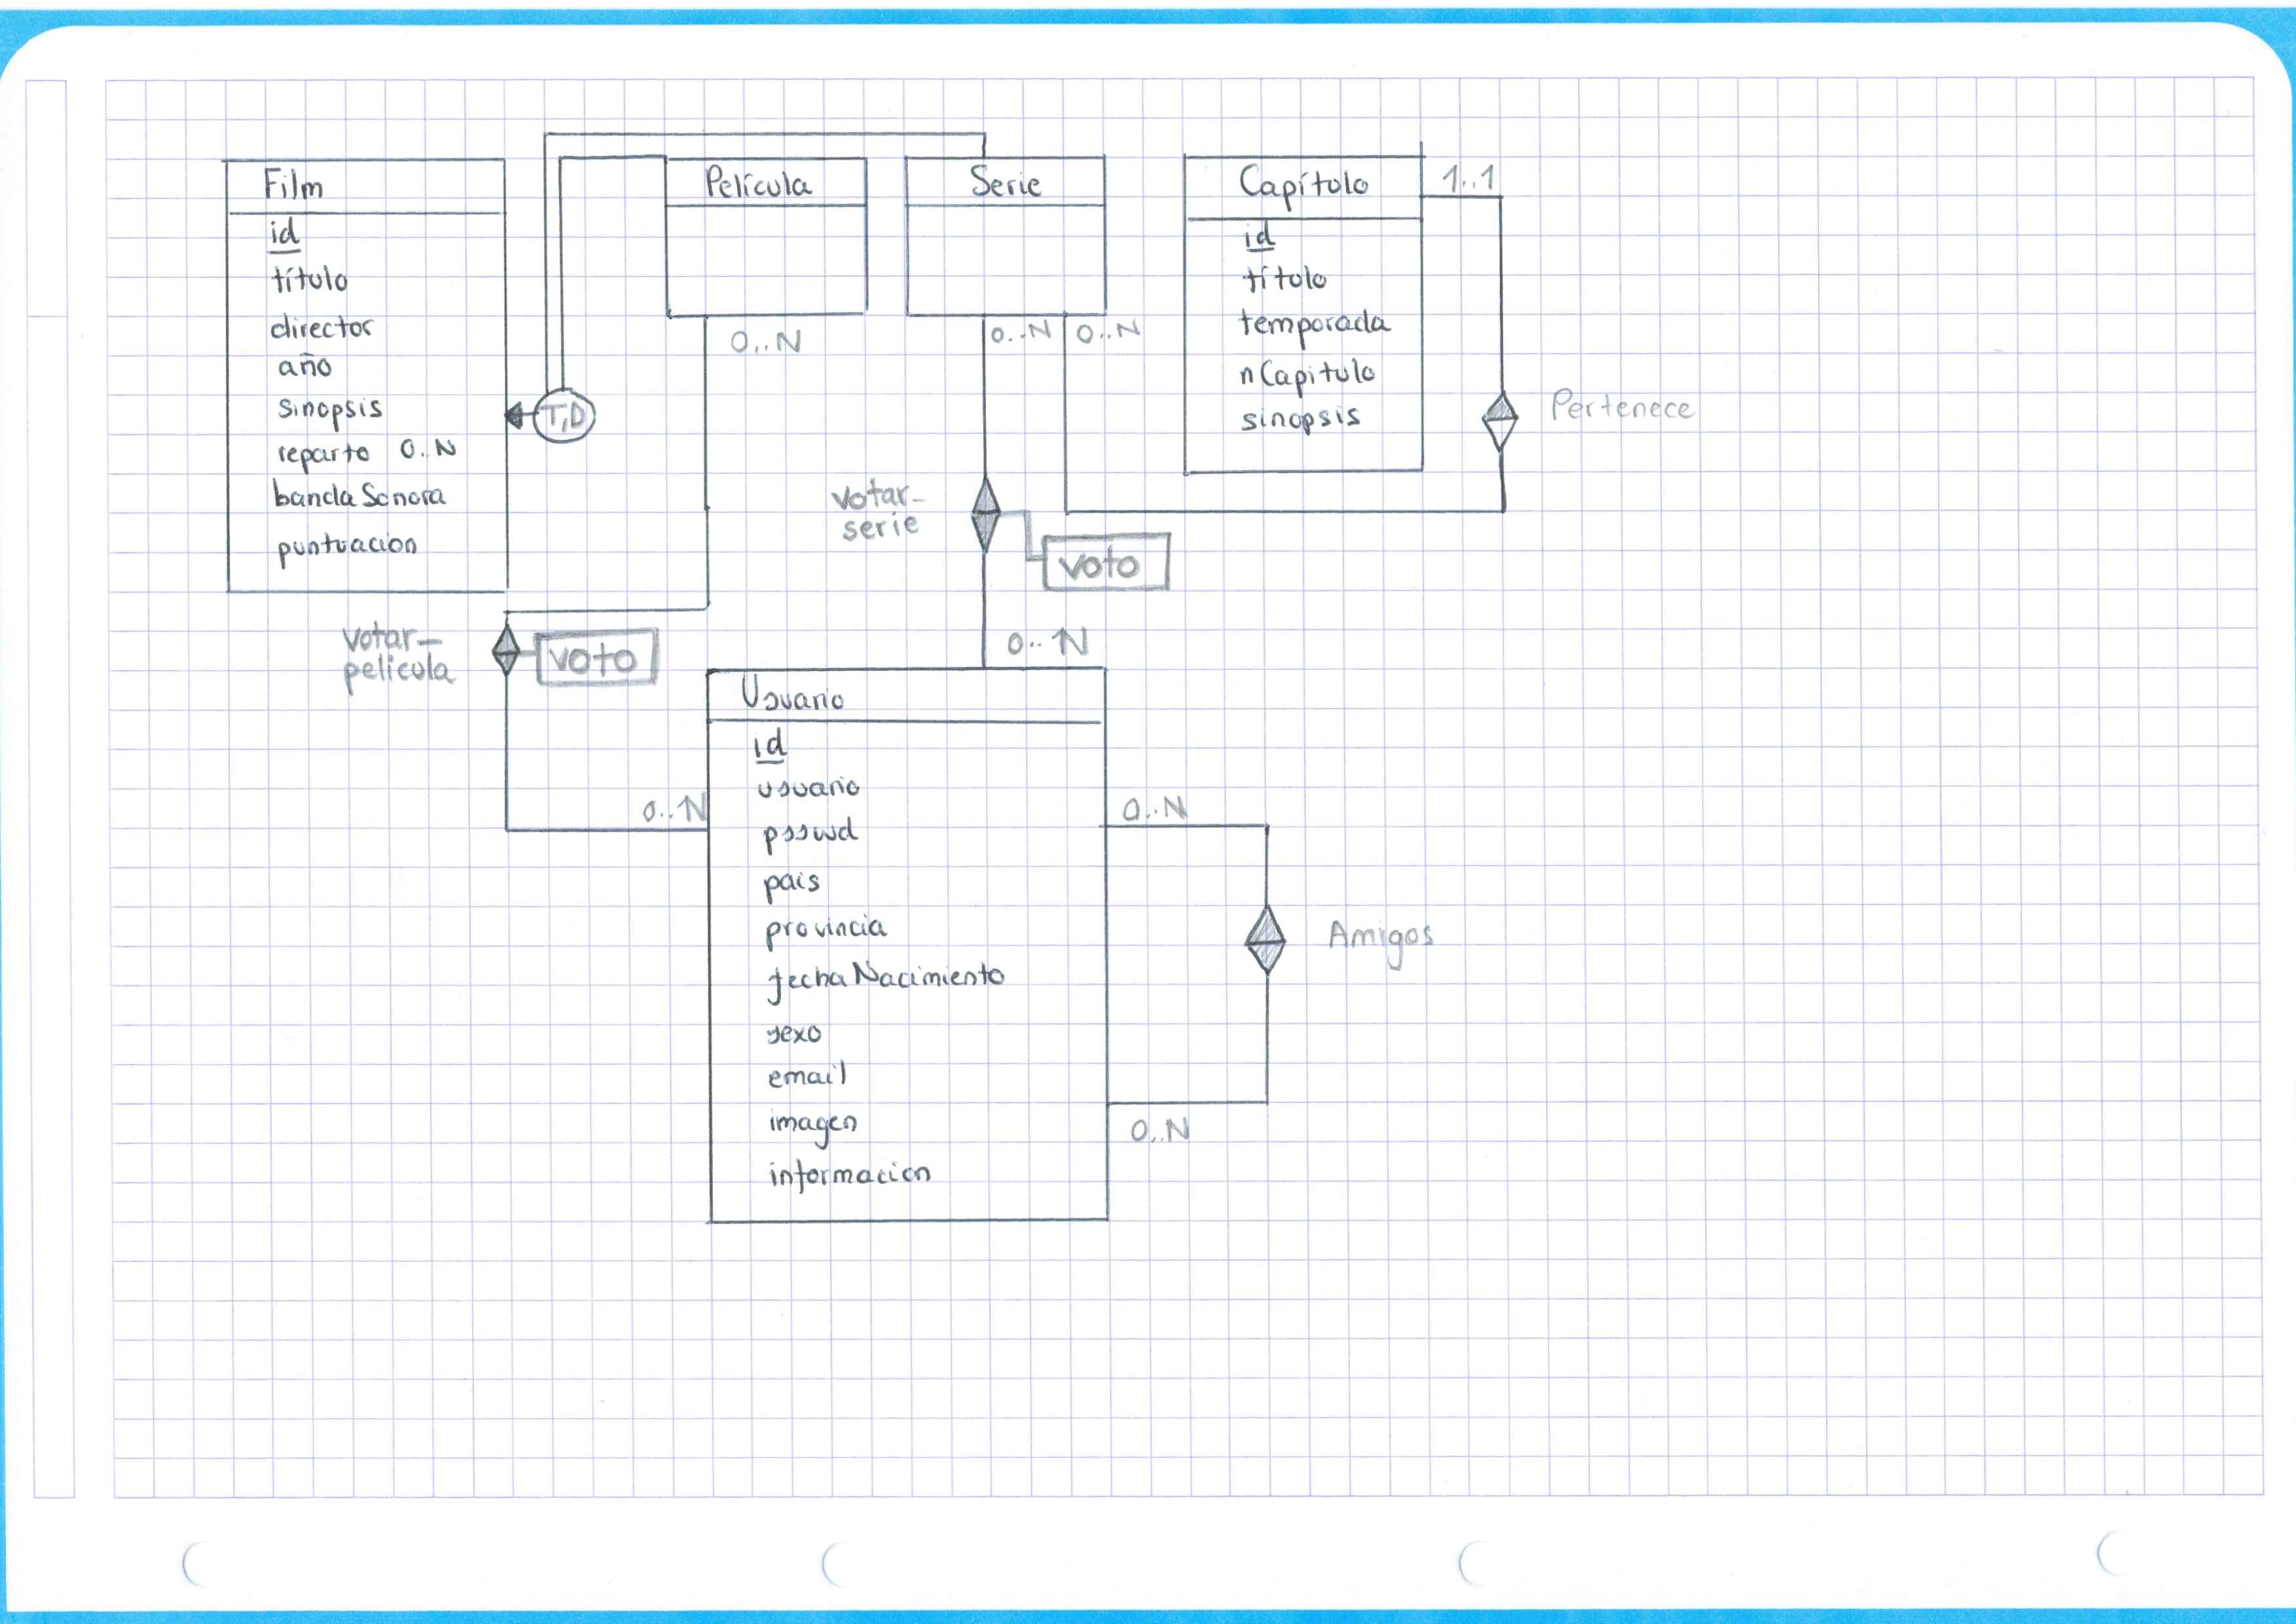 Film
id
título
director
año
sinopsis
reparto 0..N
bandaSonora
puntuacion
T,D
Película
0..N
Serie
0..N 0..N
Capítulo
id
título
temporada
nCapitulo
sinopsis
1..1
Pertenece
votar-
serie
voto
0..N
votar-
pelicula
voto
0..N
Usuario
id
usuario
psswd
pais
provincia
fechaNacimiento
sexo
email
imagen
informacion
0..N
Amigos
0..N